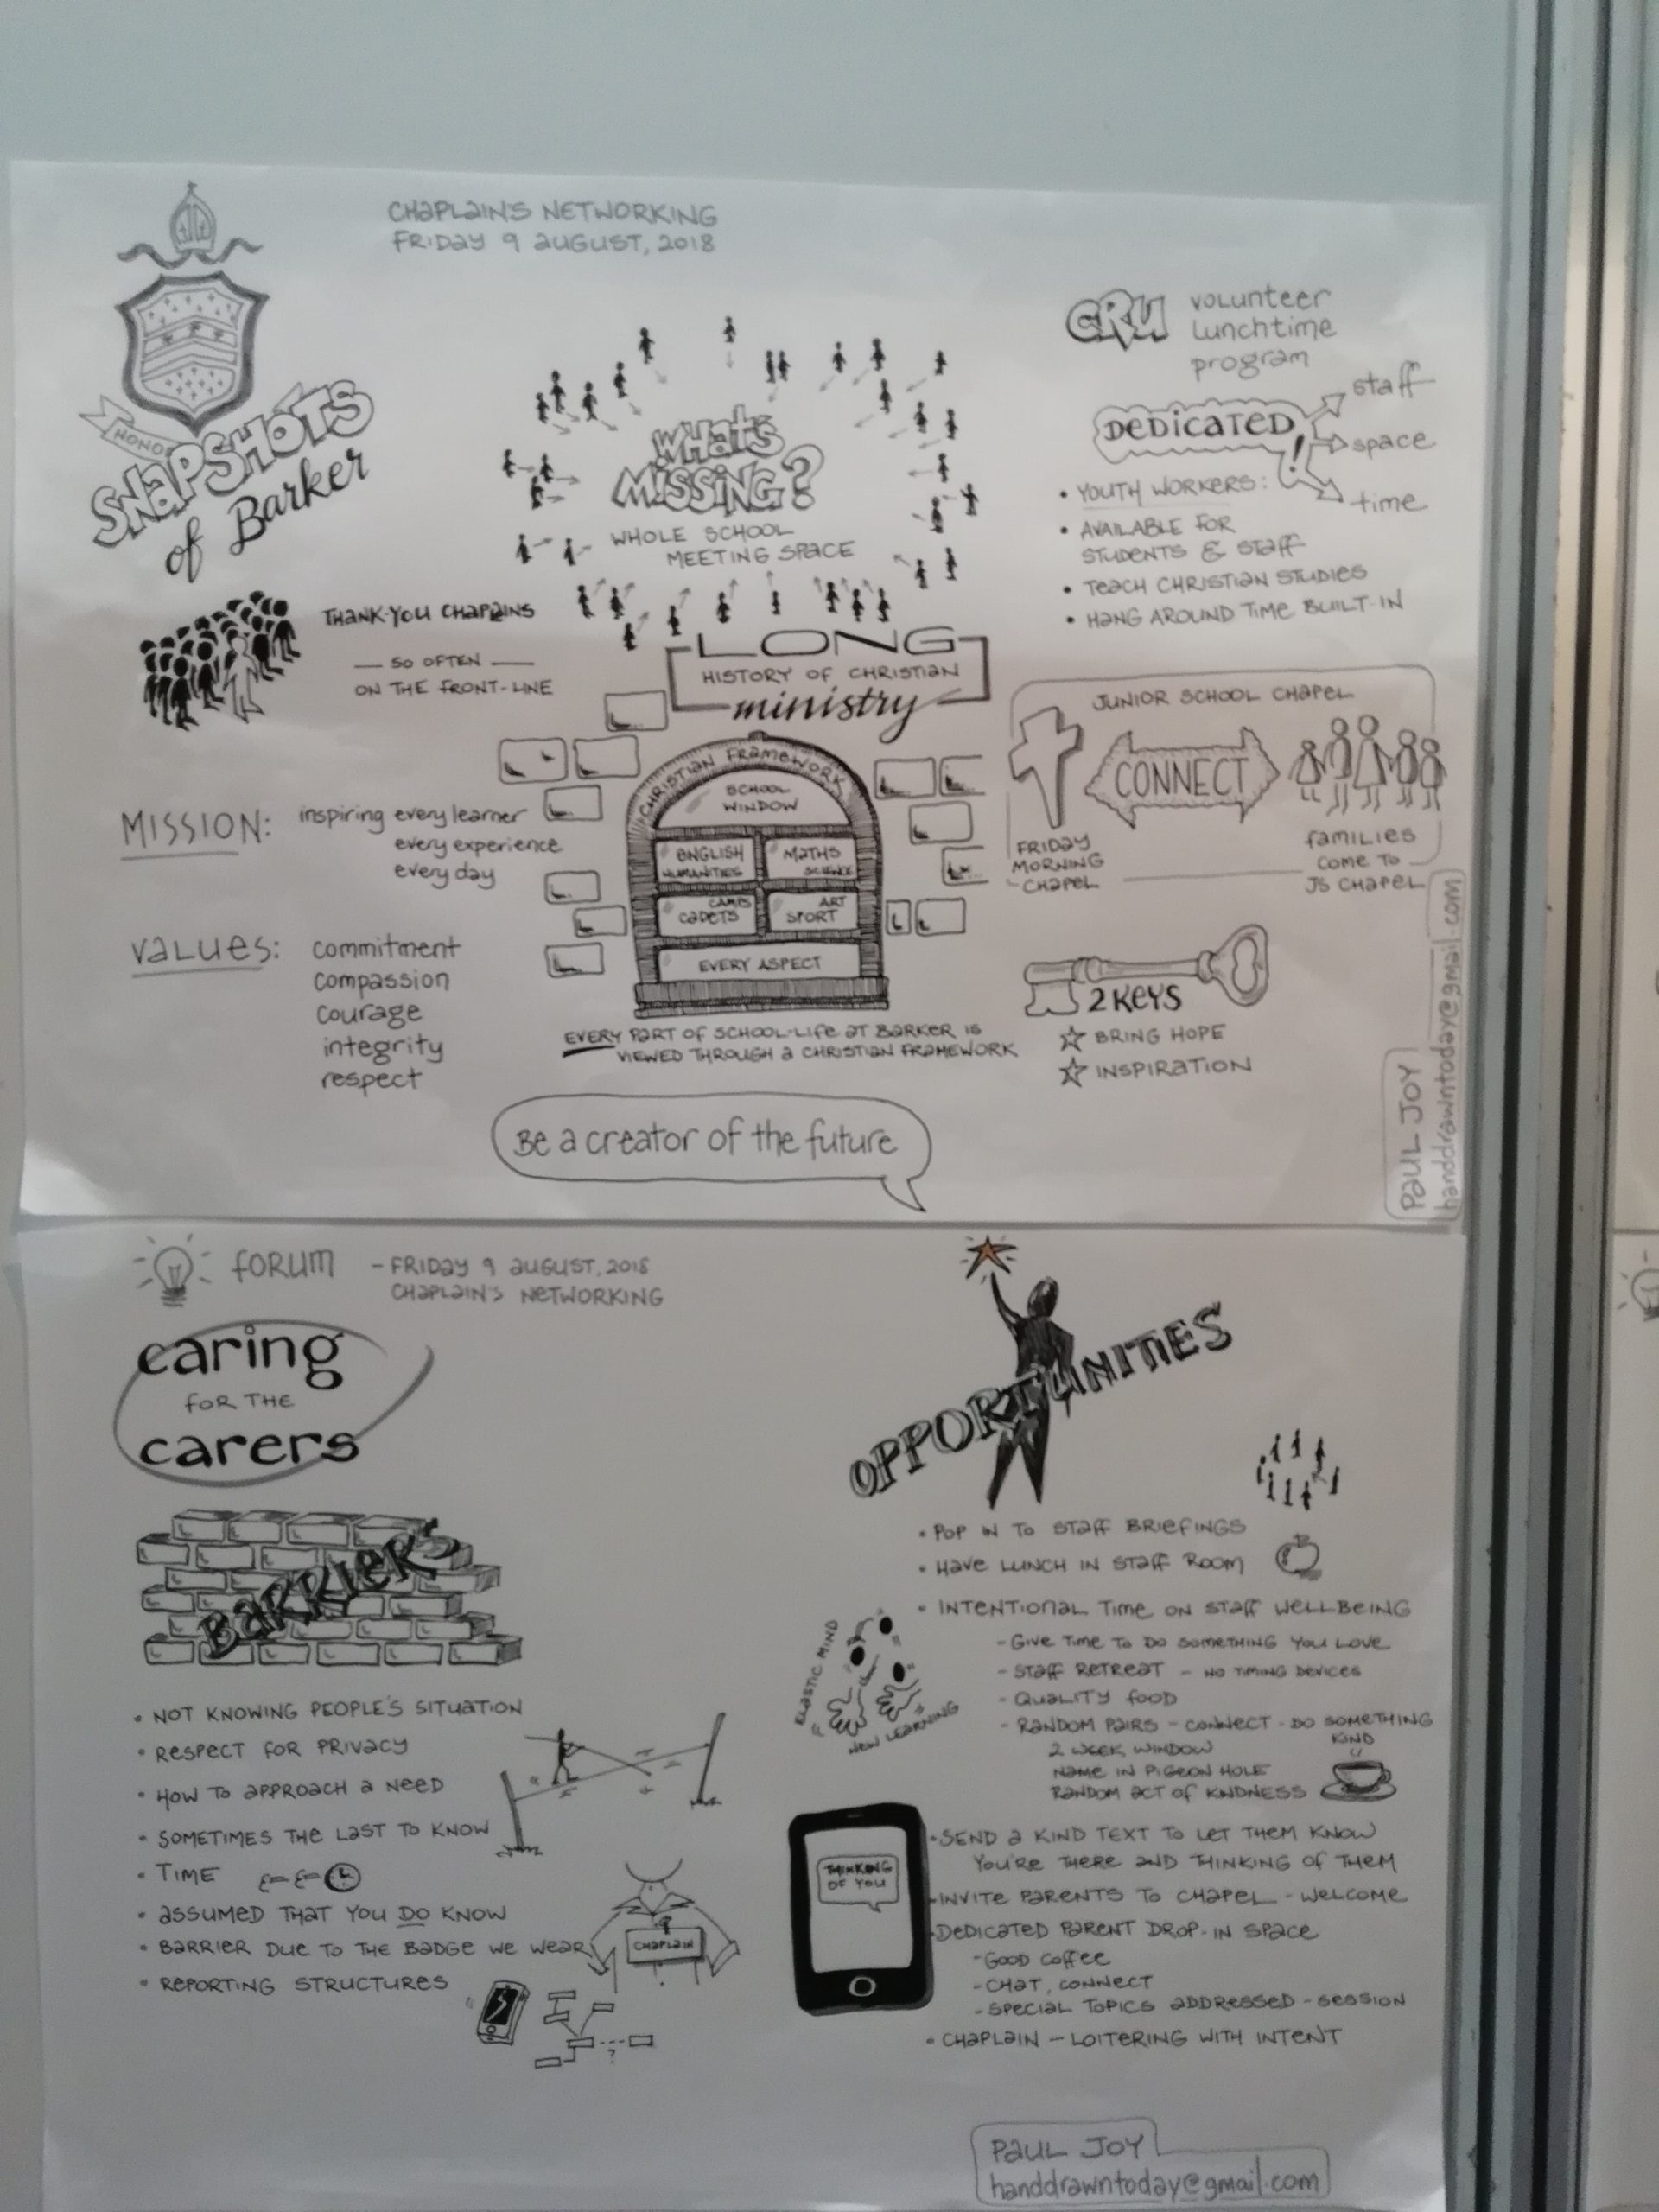 CHAPLAIN'S NETWORKING
FRIDAY 9 AUGUST, 2018
HONO
SNAPSHOTS
of Barker
WHAT'S
MISSING?
WHOLE SCHOOL
MEETING SPACE
CRU
volunteer
lunchtime
program
DEDICATED!
staff
space
time
• YOUTH WORKERS:
• AVAILABLE FOR
STUDENTS & STAFF
• TEACH CHRISTIAN STUDIES
• HANG AROUND TIME BUILT-IN
THANK-YOU CHAPLAINS
— SO OFTEN —
ON THE FRONT-LINE
LONG
HISTORY OF CHRISTIAN
ministry
JUNIOR SCHOOL CHAPEL
CONNECT
FRIDAY
MORNING
CHAPEL
families
COME TO
JS CHAPEL
MISSION: inspiring every learner
every experience
every day
CHRISTIAN FRAMEWORK
SCHOOL
WINDOW
ENGLISH
HUMANITIES
MATHS
SCIENCE
CAMPS
CADETS
ART
SPORT
EVERY ASPECT
EVERY PART OF SCHOOL-LIFE AT BARKER IS
VIEWED THROUGH A CHRISTIAN FRAMEWORK
VALUES: commitment
compassion
courage
integrity
respect
2 KEYS
☆ BRING HOPE
☆ INSPIRATION
Be a creator of the future
PAUL JOY
handdrawntoday@gmail.com
FORUM – FRIDAY 9 AUGUST, 2018
CHAPLAIN'S NETWORKING
caring
FOR THE
carers
BARRIERS
• NOT KNOWING PEOPLE'S SITUATION
• RESPECT FOR PRIVACY
• HOW TO APPROACH A NEED
• SOMETIMES THE LAST TO KNOW
• TIME
• ASSUMED THAT YOU DO KNOW
• BARRIER DUE TO THE BADGE WE WEAR
CHAPLAIN
• REPORTING STRUCTURES
?
OPPORTUNITIES
• POP IN TO STAFF BRIEFINGS
• HAVE LUNCH IN STAFF ROOM
• INTENTIONAL TIME ON STAFF WELLBEING
- GIVE TIME TO DO SOMETHING YOU LOVE
- STAFF RETREAT - NO TIMING DEVICES
- QUALITY FOOD
- RANDOM PAIRS - CONNECT - DO SOMETHING
KIND
2 WEEK WINDOW
NAME IN PIGEON HOLE
RANDOM ACT OF KINDNESS
ELASTIC MIND
NEW LEARNING
THINKING
OF YOU
• SEND A KIND TEXT TO LET THEM KNOW
YOU'RE THERE AND THINKING OF THEM
• INVITE PARENTS TO CHAPEL - WELCOME
• DEDICATED PARENT DROP-IN SPACE
- GOOD COFFEE
- CHAT, CONNECT
- SPECIAL TOPICS ADDRESSED - SESSION
• CHAPLAIN – LOITERING WITH INTENT
PAUL JOY
handdrawntoday@gmail.com